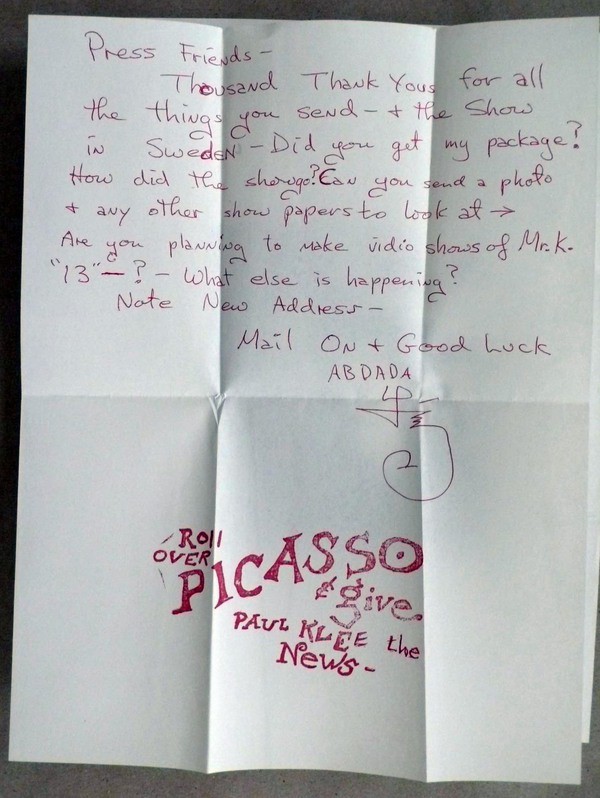 Press Friends-
Thousand Thank Yous for all
the things you send - + the Show
in Sweden - Did you get my package?
How did the show go? Can you send a photo
+ any other show papers to look at →
Are you planning to make vidio shows of Mr. K.
"13" — ? - What else is happening?
Note New Address -
Mail On + Good Luck
ABDADA
Roll
OVER
PICASSO
& give
PAUL KLEE the
News -